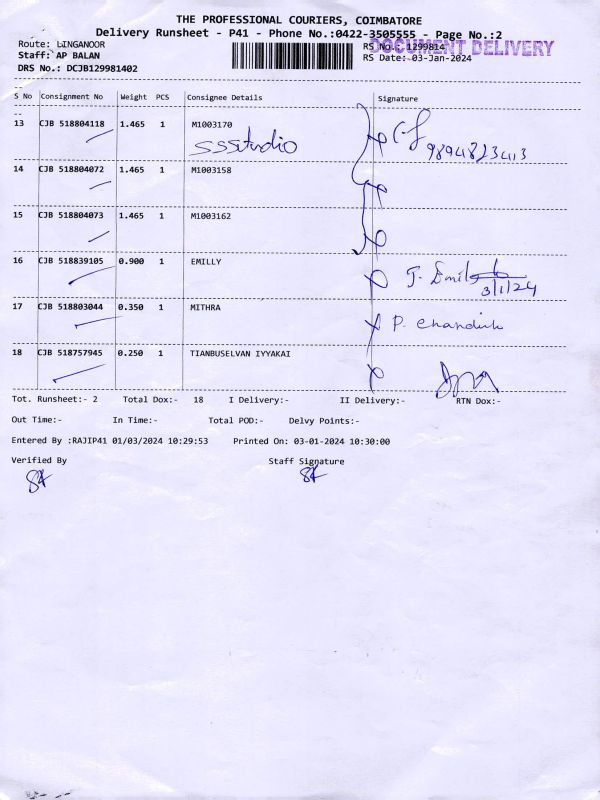 THE PROFESSIONAL COURIERS, COIMBATORE
Delivery Runsheet - P41 - Phone No.:0422-3505555 - Page No.:2
Route: LINGANOOR
RS No.: 1299814
DOCUMENT DELIVERY
Staff: AP BALAN
RS Date: 03-Jan-2024
DRS No.: DCJB129981402
S No Consignment No Weight PCS Consignee Details Signature
13 CJB 518804118 1.465 1 M1003170
SSStudio
9894823413
14 CJB 518804072 1.465 1 M1003158
15 CJB 518804073 1.465 1 M1003162
16 CJB 518839105 0.900 1 EMILLY
3/1/24
17 CJB 518803044 0.350 1 MITHRA
18 CJB 518757945 0.250 1 TIANBUSELVAN IYYAKAI
Tot. Runsheet:- 2 Total Dox:- 18 I Delivery:- II Delivery:- RTN Dox:-
Out Time:- In Time:- Total POD:- Delvy Points:-
Entered By :RAJIP41 01/03/2024 10:29:53 Printed On: 03-01-2024 10:30:00
Verified By Staff Signature